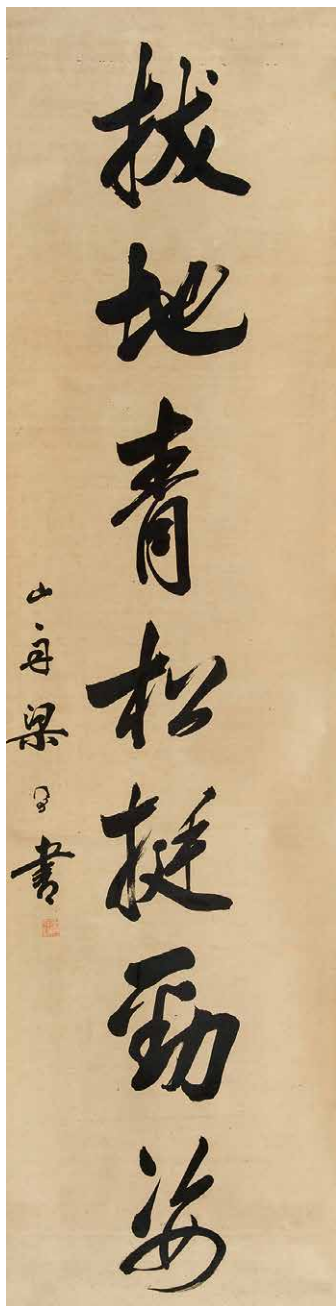 拔地青松挺勁姿
山舟梁同書